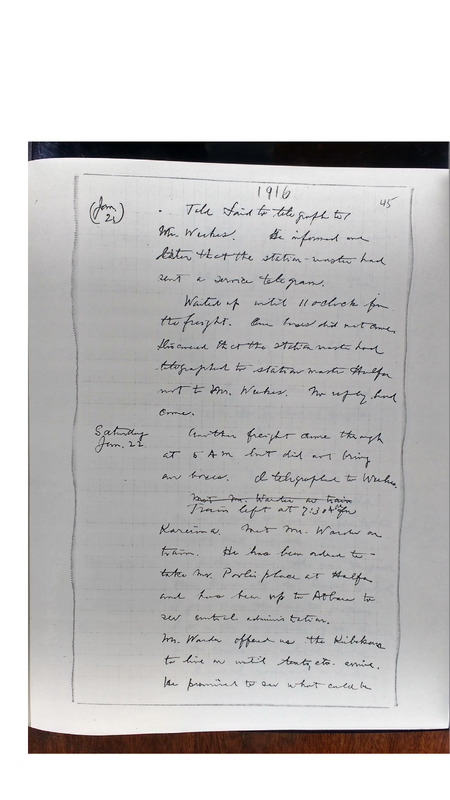 1916
45
(Jan. 21)
Told Said to telegraph to
Mr. Weekes. He informed me
later that the station-master had
sent a service telegram.
Waited up until 11 o'clock for
the freight. Our boxes did not come.
Discovered that the station master had
telegraphed to station master Halfa
not to Mr. Weekes. No reply had
come.
Saturday
Jan. 22
Another freight came through
at 5 A.M. but did not bring
our boxes. I telegraphed to Weekes.
Met Mr. Warder on train
Train left at 7:30 for
Kareima. Met Mr. Warder on
train. He has been ordered to
take Mr. place at Halfa
and has been up to Atbara to
see central administration.
Mr. Warder offered us the
to live in until tents, etc. arrive.
He promised to see what could be